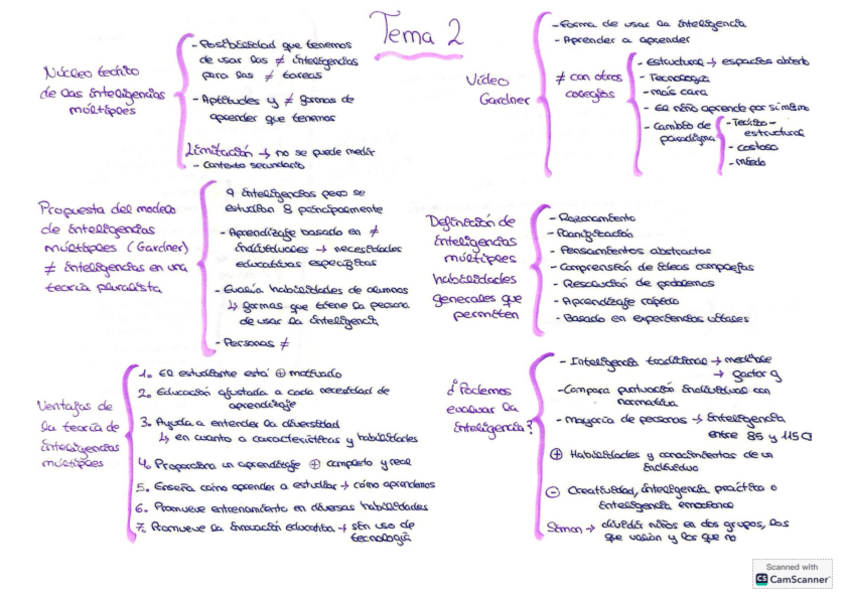 Tema 2
Núcleo teórico
de las inteligencias
múltiples
- Posibilidad que tenemos
de usar las ≠ inteligencias
para las ≠ tareas
- Aptitudes y ≠ formas de
aprender que tenemos
Limitación → no se puede medir
- Contexto secundario
Vídeo
Gardner
- Forma de usar la inteligencia
- Aprender a aprender
≠ con otros
colegios
- Estructural → espacios abierto
- Tecnología
- más cara
- El niño aprende por si mismo
- Cambio de
paradigma
- Teórico -
estructural
- costoso
- miedo
Propuesta del modelo
de inteligencias
múltiples (Gardner)
≠ inteligencias en una
teoría pluralista
9 inteligencias pero se
estudian 8 principalmente
- Aprendizaje basado en ≠
individuales → necesidades
educativas específicas
- Evalúa habilidades de alumnos
↳ formas que tiene la persona
de usar la inteligencia
- Personas ≠
Definición de
inteligencias
múltiples
habilidades
generales que
permiten
- Razonamiento
- Planificación
- Pensamientos abstractos
- Comprensión de ideas complejas
- Resolución de problemas
- Aprendizaje rápido
- Basado en experiencias vitales
Ventajas de
la teoría de
inteligencias
múltiples
1. El estudiante está ⊕ motivado
2. Educación ajustada a cada necesidad de
aprendizaje
3. Ayuda a entender la diversidad
↳ en cuanto a características y habilidades
4. Proporciona un aprendizaje ⊕ completo y real
5. Enseña cómo aprender a estudiar → cómo aprendemos
6. Promueve entrenamiento en diversas habilidades
7. Promueve la innovación educativa → sin uso de
tecnología
¿Podemos
evaluar la
inteligencia?
- Inteligencia tradicional → medible
→ factor g
- Compara puntuación individual con
normativa
- Mayoría de personas → inteligencia
entre 85 y 115 CI
⊕ Habilidades y conocimientos de un
individuo
⊖ Creatividad, inteligencia práctica o
inteligencia emocional
Simon → dividir niños en dos grupos, los
que valían y los que no
Scanned with
CS CamScanner